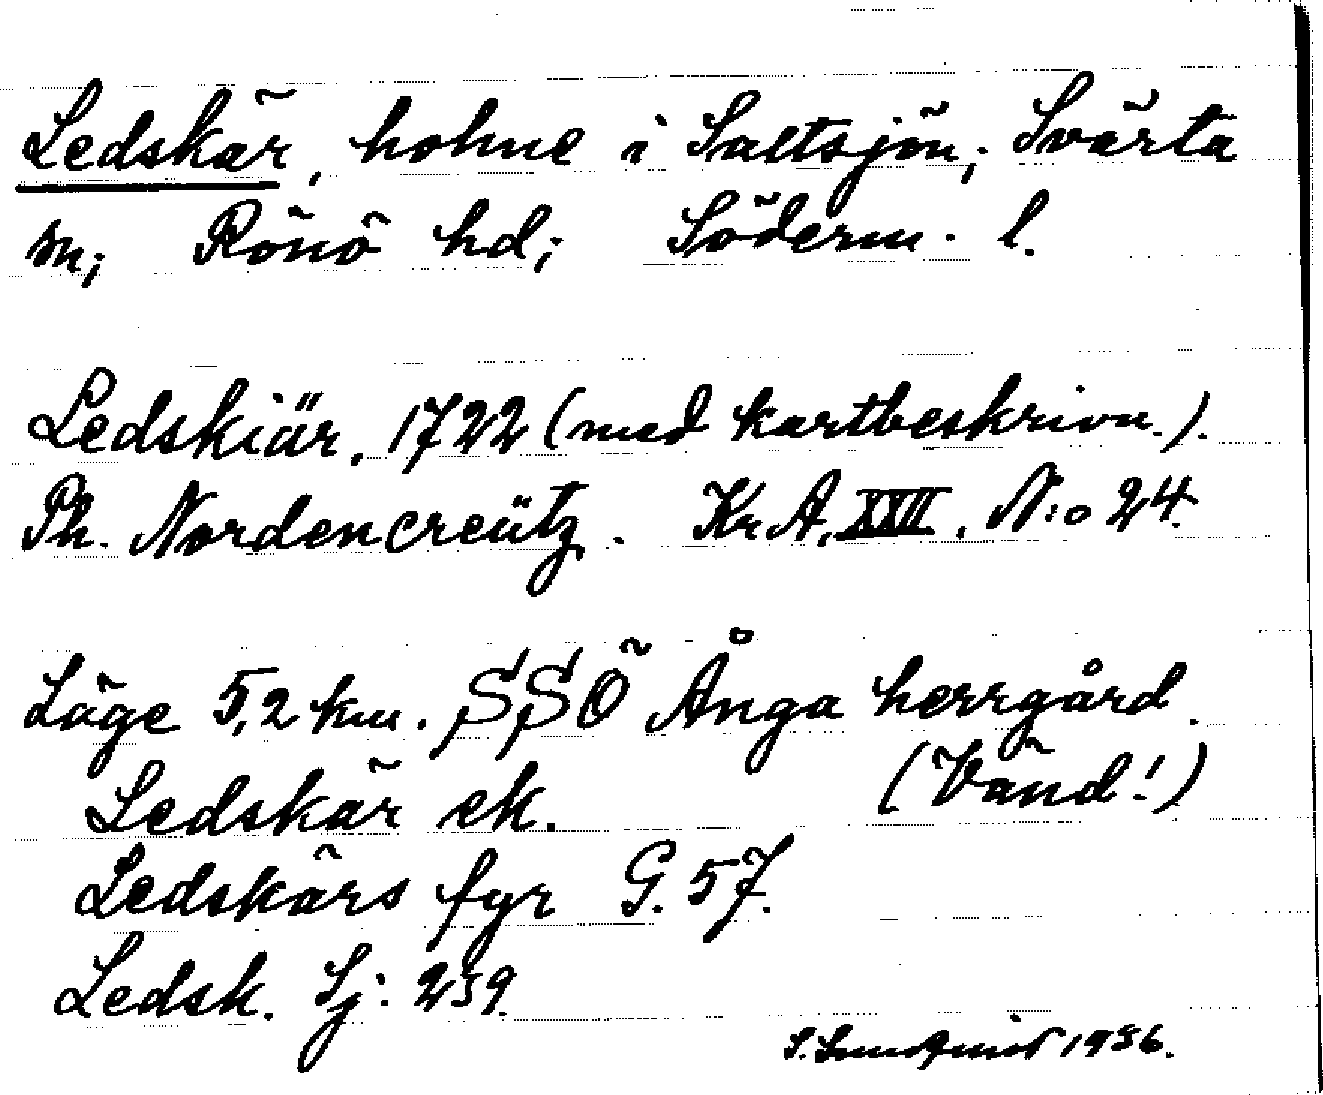 Ledskär, holme i Saltsjön; Svärta
sn; Rönö hd; Söderm. l.
Ledskiär. 1722 (med kartbeskrivn.).
Ph. Nordencreütz. Kr.A. XXII. N:o 24.
Läge 5,2 km. SSÖ Ånga herrgård.
(Vänd!)
Ledskär ek.
Ledskärs fyr G. 57.
Ledsk. Sj. 239.
1936.